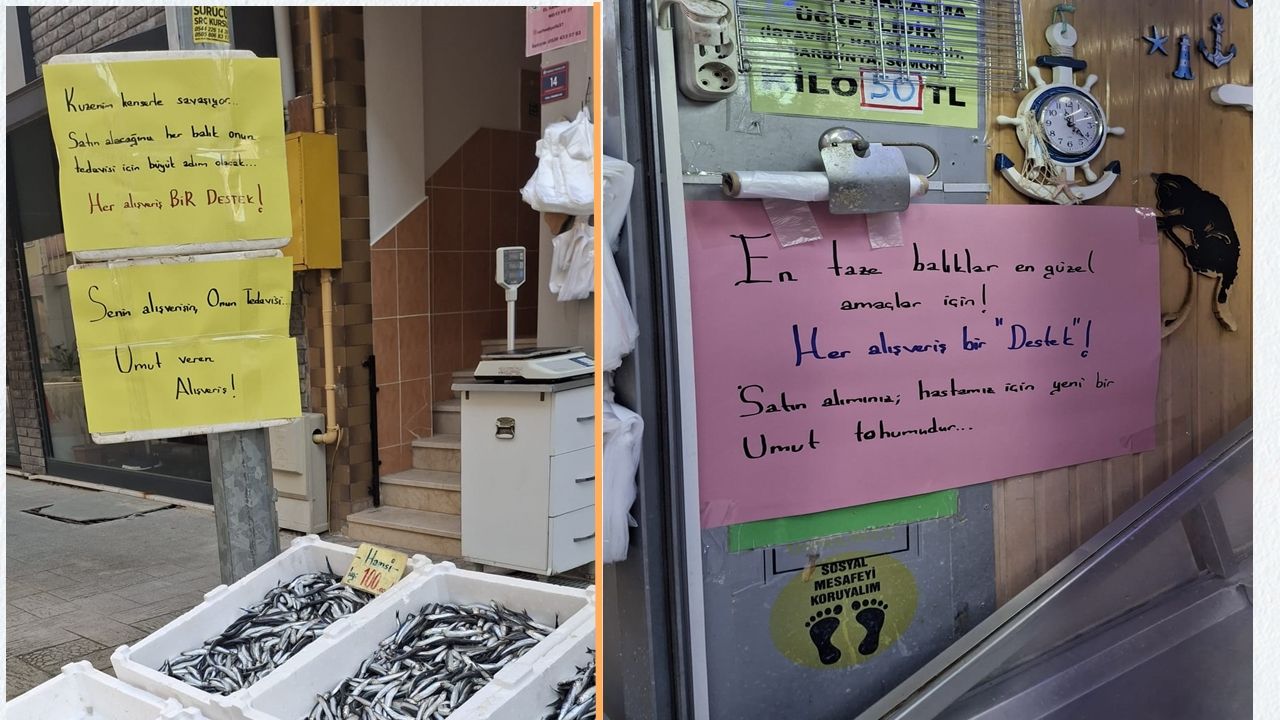 SÜRÜCÜ
SRC KURSU
Kuzenim kanserle savaşıyor...
Satın alacağınız her balık onun
tedavisi için büyük adım olacak...
Her alışveriş BİR DESTEK!
Senin alışverişin, Onun Tedavisi...
Umut veren
Alışveriş!
14
Hamsi
100
ÜCRETLİDİR
KİLO 50 TL
En taze balıklar en güzel
amaçlar için!
Her alışveriş bir "Destek"!
Satın alımınız; hastamız için yeni bir
Umut tohumudur...
SOSYAL
MESAFEYİ
KORUYALIM